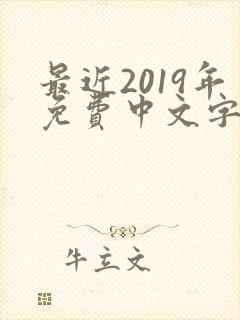 最近2019年
免费中文字
牛立文